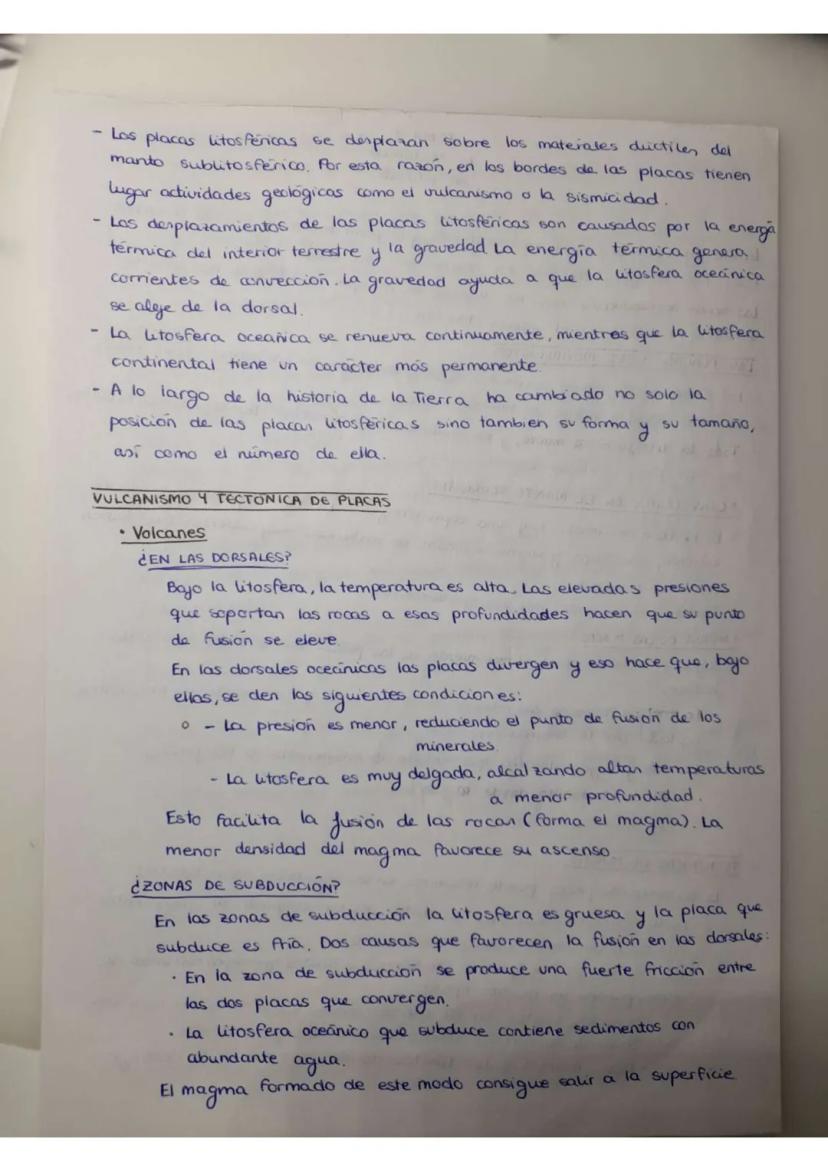 - Las placas litosféricas se desplazan sobre los materiales dúctiles del
manto sublitosférico. Por esta razón, en los bordes de las placas tienen
lugar actividades geológicas como el vulcanismo o la sismicidad.
- Los desplazamientos de las placas litosféricas son causados por la energía
térmica del interior terrestre y la gravedad. La energía térmica genera
corrientes de convección. La gravedad ayuda a que la litosfera oceánica
se aleje de la dorsal.
- La litosfera oceánica se renueva continuamente, mientras que la litosfera
continental tiene un carácter más permanente.
- A lo largo de la historia de la Tierra ha cambiado no solo la
posición de las placas litosféricas sino tambien su forma y su tamaño,
así como el número de ella.
VULCANISMO Y TECTÓNICA DE PLACAS
• Volcanes
¿EN LAS DORSALES?
Bajo la litosfera, la temperatura es alta. Las elevadas presiones
que soportan las rocas a esas profundidades hacen que su punto
de fusión se eleve.
En las dorsales oceánicas las placas divergen y eso hace que, bajo
ellas, se den las siguientes condiciones:
○ - La presión es menor, reduciendo el punto de fusión de los
minerales.
- La litosfera es muy delgada, alcalzando altas temperaturas
a menor profundidad.
Esto facilita la fusión de las rocas (forma el magma). La
menor densidad del magma favorece su ascenso
¿ZONAS DE SUBDUCCIÓN?
En las zonas de subducción la litosfera es gruesa y la placa que
subduce es fría. Dos causas que favorecen la fusión en las dorsales:
· En la zona de subducción se produce una fuerte fricción entre
las dos placas que convergen.
· La litosfera oceánico que subduce contiene sedimentos con
abundante agua.
El magma formado de este modo consigue salir a la superficie